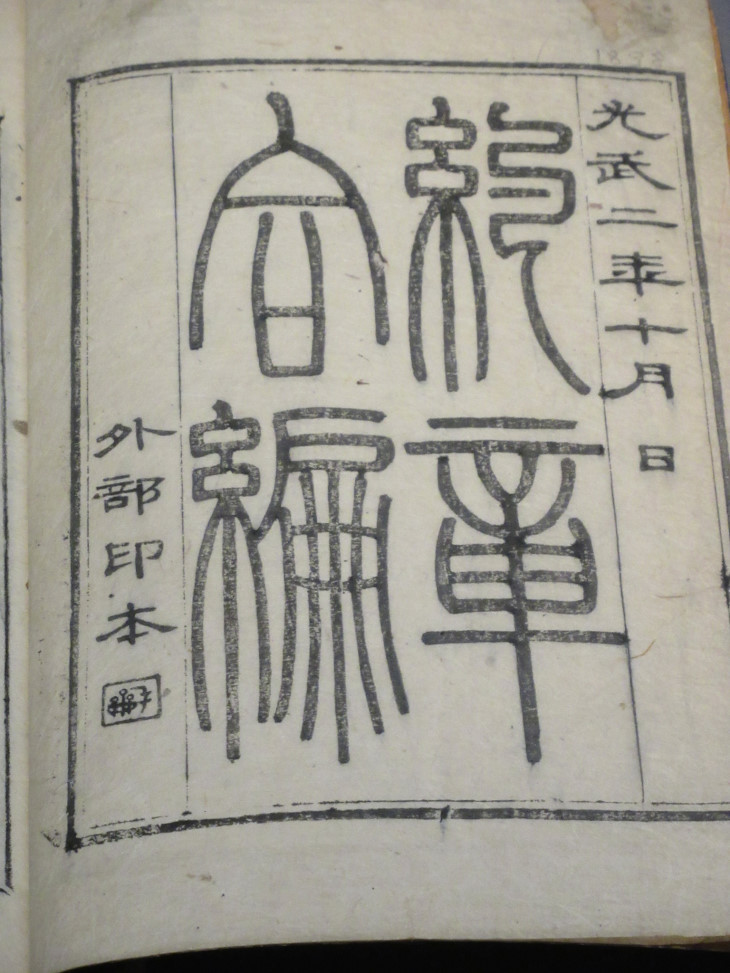 光武二年十月 日
約章
合編
外部印本